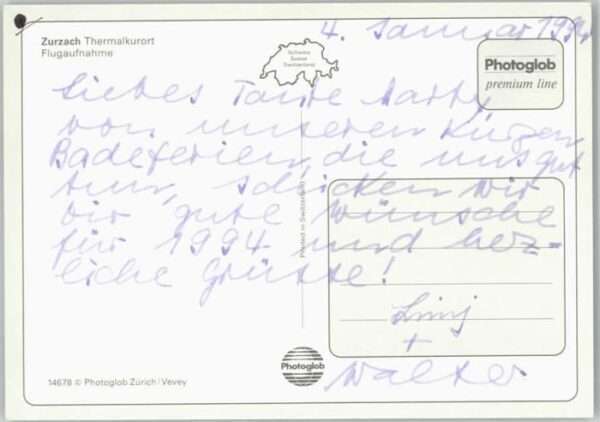 4. Januar 1994
Zurzach Thermalkurort
Flugaufnahme
Schweiz
Suisse
Switzerland
Photoglob
premium line
Liebes Tante
von unseren kurzen
Badeferien, die uns gut
tun, schicken wir
dir gute Wünsche
für 1994 und herz-
liche Grüsse!
+
Walter
Printed in Switzerland
Photoglob
14678 © Photoglob Zürich/Vevey